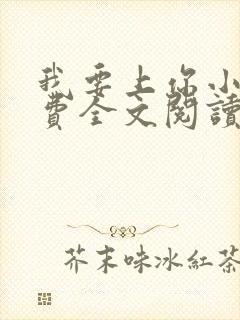 我要上你小
費全文閱讀
芥末味冰紅茶